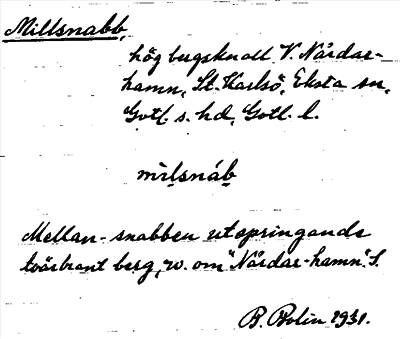 Millsnabb,
hög bergsknall V. Nårdar-
hamn, St. Karlsö, Eksta sn,
Gotl. s. hd, Gotl. l.
mìlsnáb
Mellan-snabben utspringande
tvärbrant berg, v. om "Nårdar-hamn". S.
B. Bolin 1931.